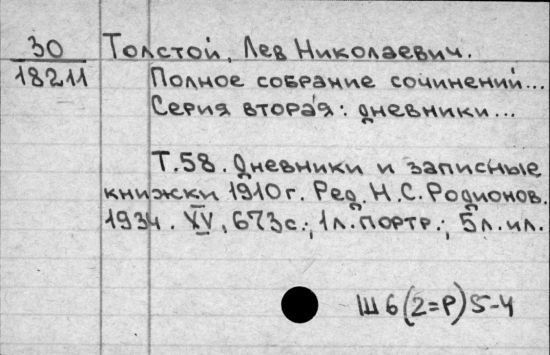 30 Толстой, Лев Николаевич.
18211 Полное собрание сочинений...
Серия вторая: дневники...
Т.58. Дневники и записные
книжки 1910г. Ред. Н.С. Родионов.
1934. XV, 673с.; 1л. портр.; 5л. ил.
Ш6(2=Р)5-4